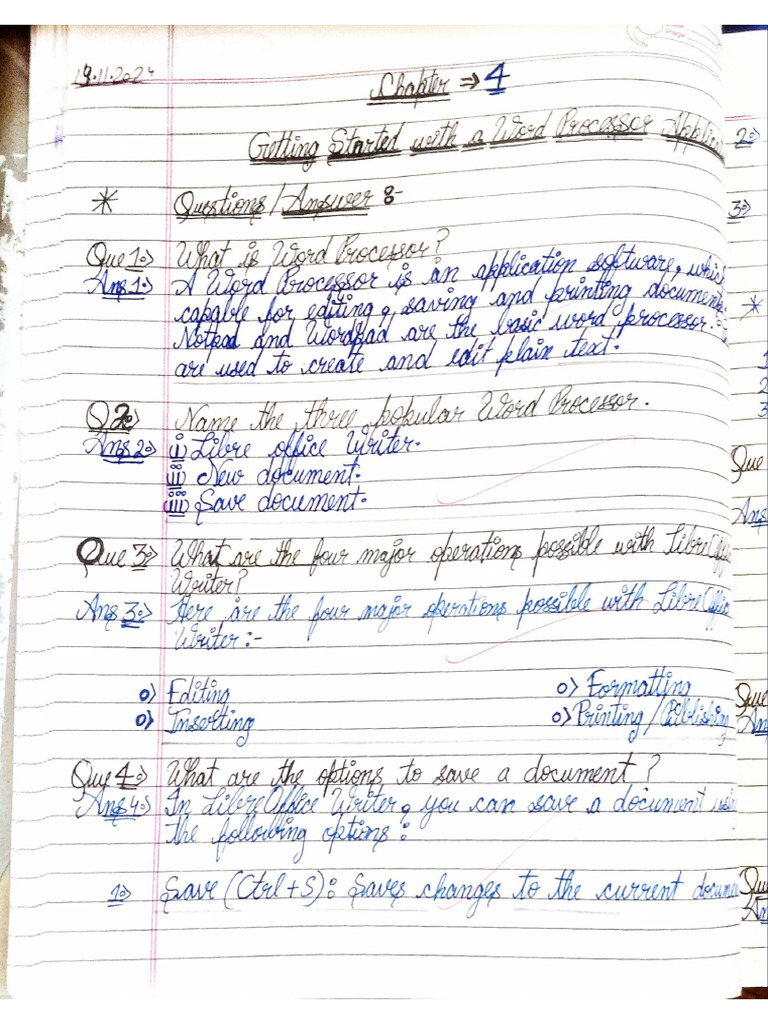 19.11.2024
Chapter ⇒ 4
Getting Started with a Word Processor Applic
* Questions/Answer :-
Que 1:> What is Word Processor?
Ans 1:> A Word Processor is an application software, which
capable for editing, saving and printing documents.
Notpad and Wordpad are the basic word processor.
are used to create and edit plain text.
Q 2:> Name the three popular Word Processor.
Ans 2:> i) Libre office Writer.
ii) New document.
iii) Save document.
Que 3:> What are the four major operations possible with LibreOffic
Writer?
Ans 3:> Here are the four major operations possible with LibreOffic
Writer :-
o> Editing o> Formatting
o> Inserting o> Printing/Publishing
Que 4:> What are the options to save a document?
Ans 4:> In LibreOffice Writer, you can save a document using
the following options :
1:> Save (Ctrl+S): Saves changes to the current docume
2:>
3:>
*
1
2
3
Que
Ans
Que
An
Que
An